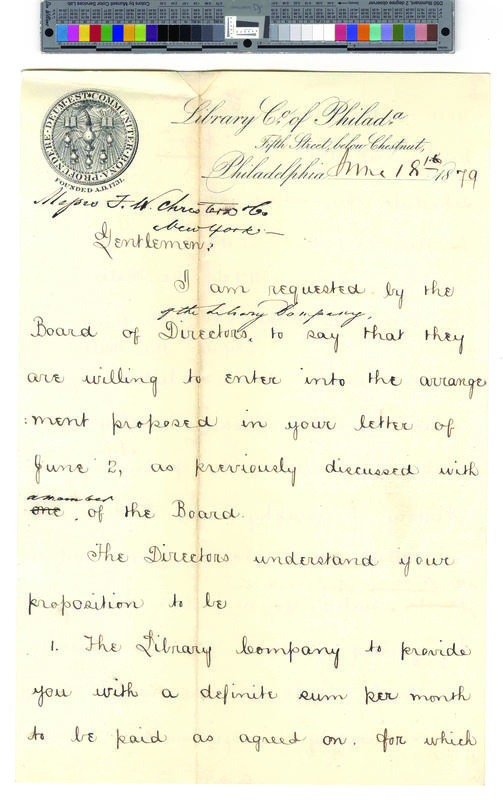 COMMUNITER BONA PROFUNDERE DEUM EST
FOUNDED A.D. 1731.
Library Co. of Philada
Fifth Street, below Chestnut,
Philadelphia June 18th 1879
Messrs F. W. Christern & Co
New York.—
Gentlemen:
I am requested by the
of the Library Company,
Board of Directors, to say that they
are willing to enter into the arrange
:ment proposed in your letter of
June 2, as previously discussed with
a member
one, of the Board.
The Directors understand your
proposition to be
1. The Library Company to provide
you with a definite sum per month
to be paid as agreed on, for which